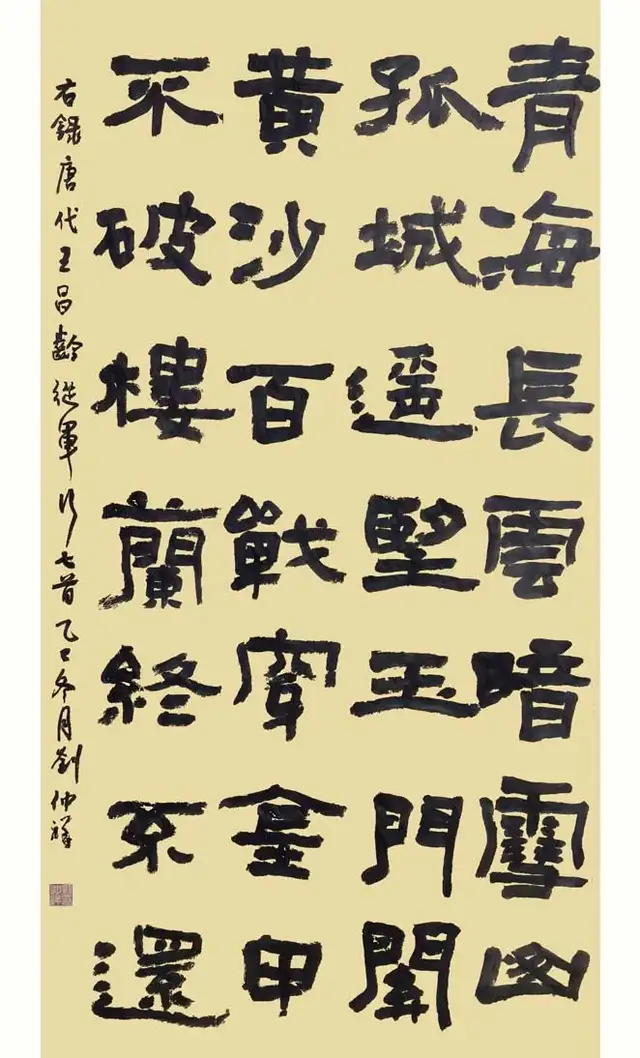 青海長雲暗雪山
孤城遥望玉門關
黄沙百戰穿金甲
不破樓蘭終不還
右錄唐代王昌齡從軍行七首乙巳冬月劉仲祥